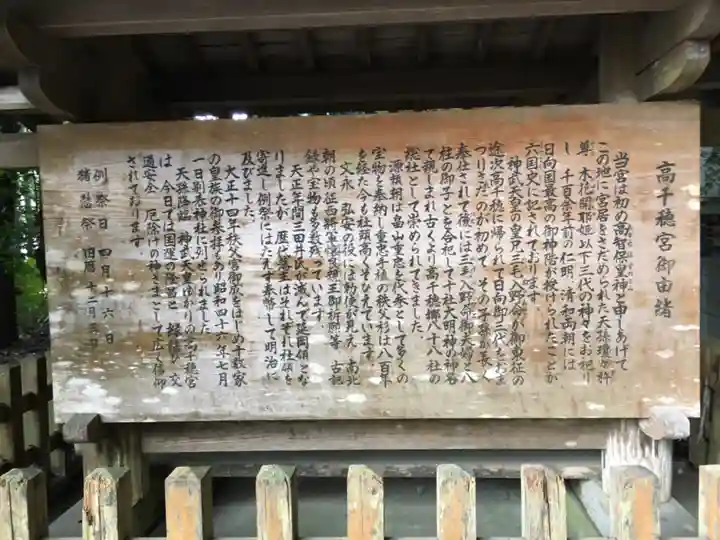 高千穂宮御由緒
当宮は初め高智保皇神と申しあげて
この地に宮居をさだめられた天孫瓊々杵
尊 木花開耶姫以下三代の神々をお祀り
し 千百余年前の仁明、清和両朝には
日向国最高の御神階が授けられたことが
六国史に記されております。
神武天皇の皇兄三毛入野命が御東征の
途次高千穂に帰られて日向御三代をおま
つりされたのが初めで その子孫が長く
奉仕されて後には三毛入野命御夫婦と八
柱の御子とを合祀して十社大明神の神名
で親しまれ古くより高千穂郷八十八社の
総社として崇められてきました。
源頼朝は畠山重忠を代参として多くの
宝物を奉納し重忠手植の秩父杉は八百年
を経た今も社頭高くそびえています。
文永 弘安の役には勅使が見え 南北
朝の頃征西将軍懐良王御祈願等 古記
録や宝物も多数残っています。
天正年間三田井氏が滅んで延岡領とな
りましたが 歴代領主はそれぞれ社領を
寄進し例祭にはたえず奉幣して明治に
及びました。
大正十四年秩父宮御成をはじめ十数家
の皇族の御参拝があり昭和四十六年七月
一日別表神社に列せられました
天孫降臨 神武天皇ゆかりの高千穂宮
は 今日では国運の隆昌と 縁結び 交
通安全 厄除けの神さまとして広く信仰
されております
例祭日 四月十六日
猪掛祭 旧暦 十二月三日